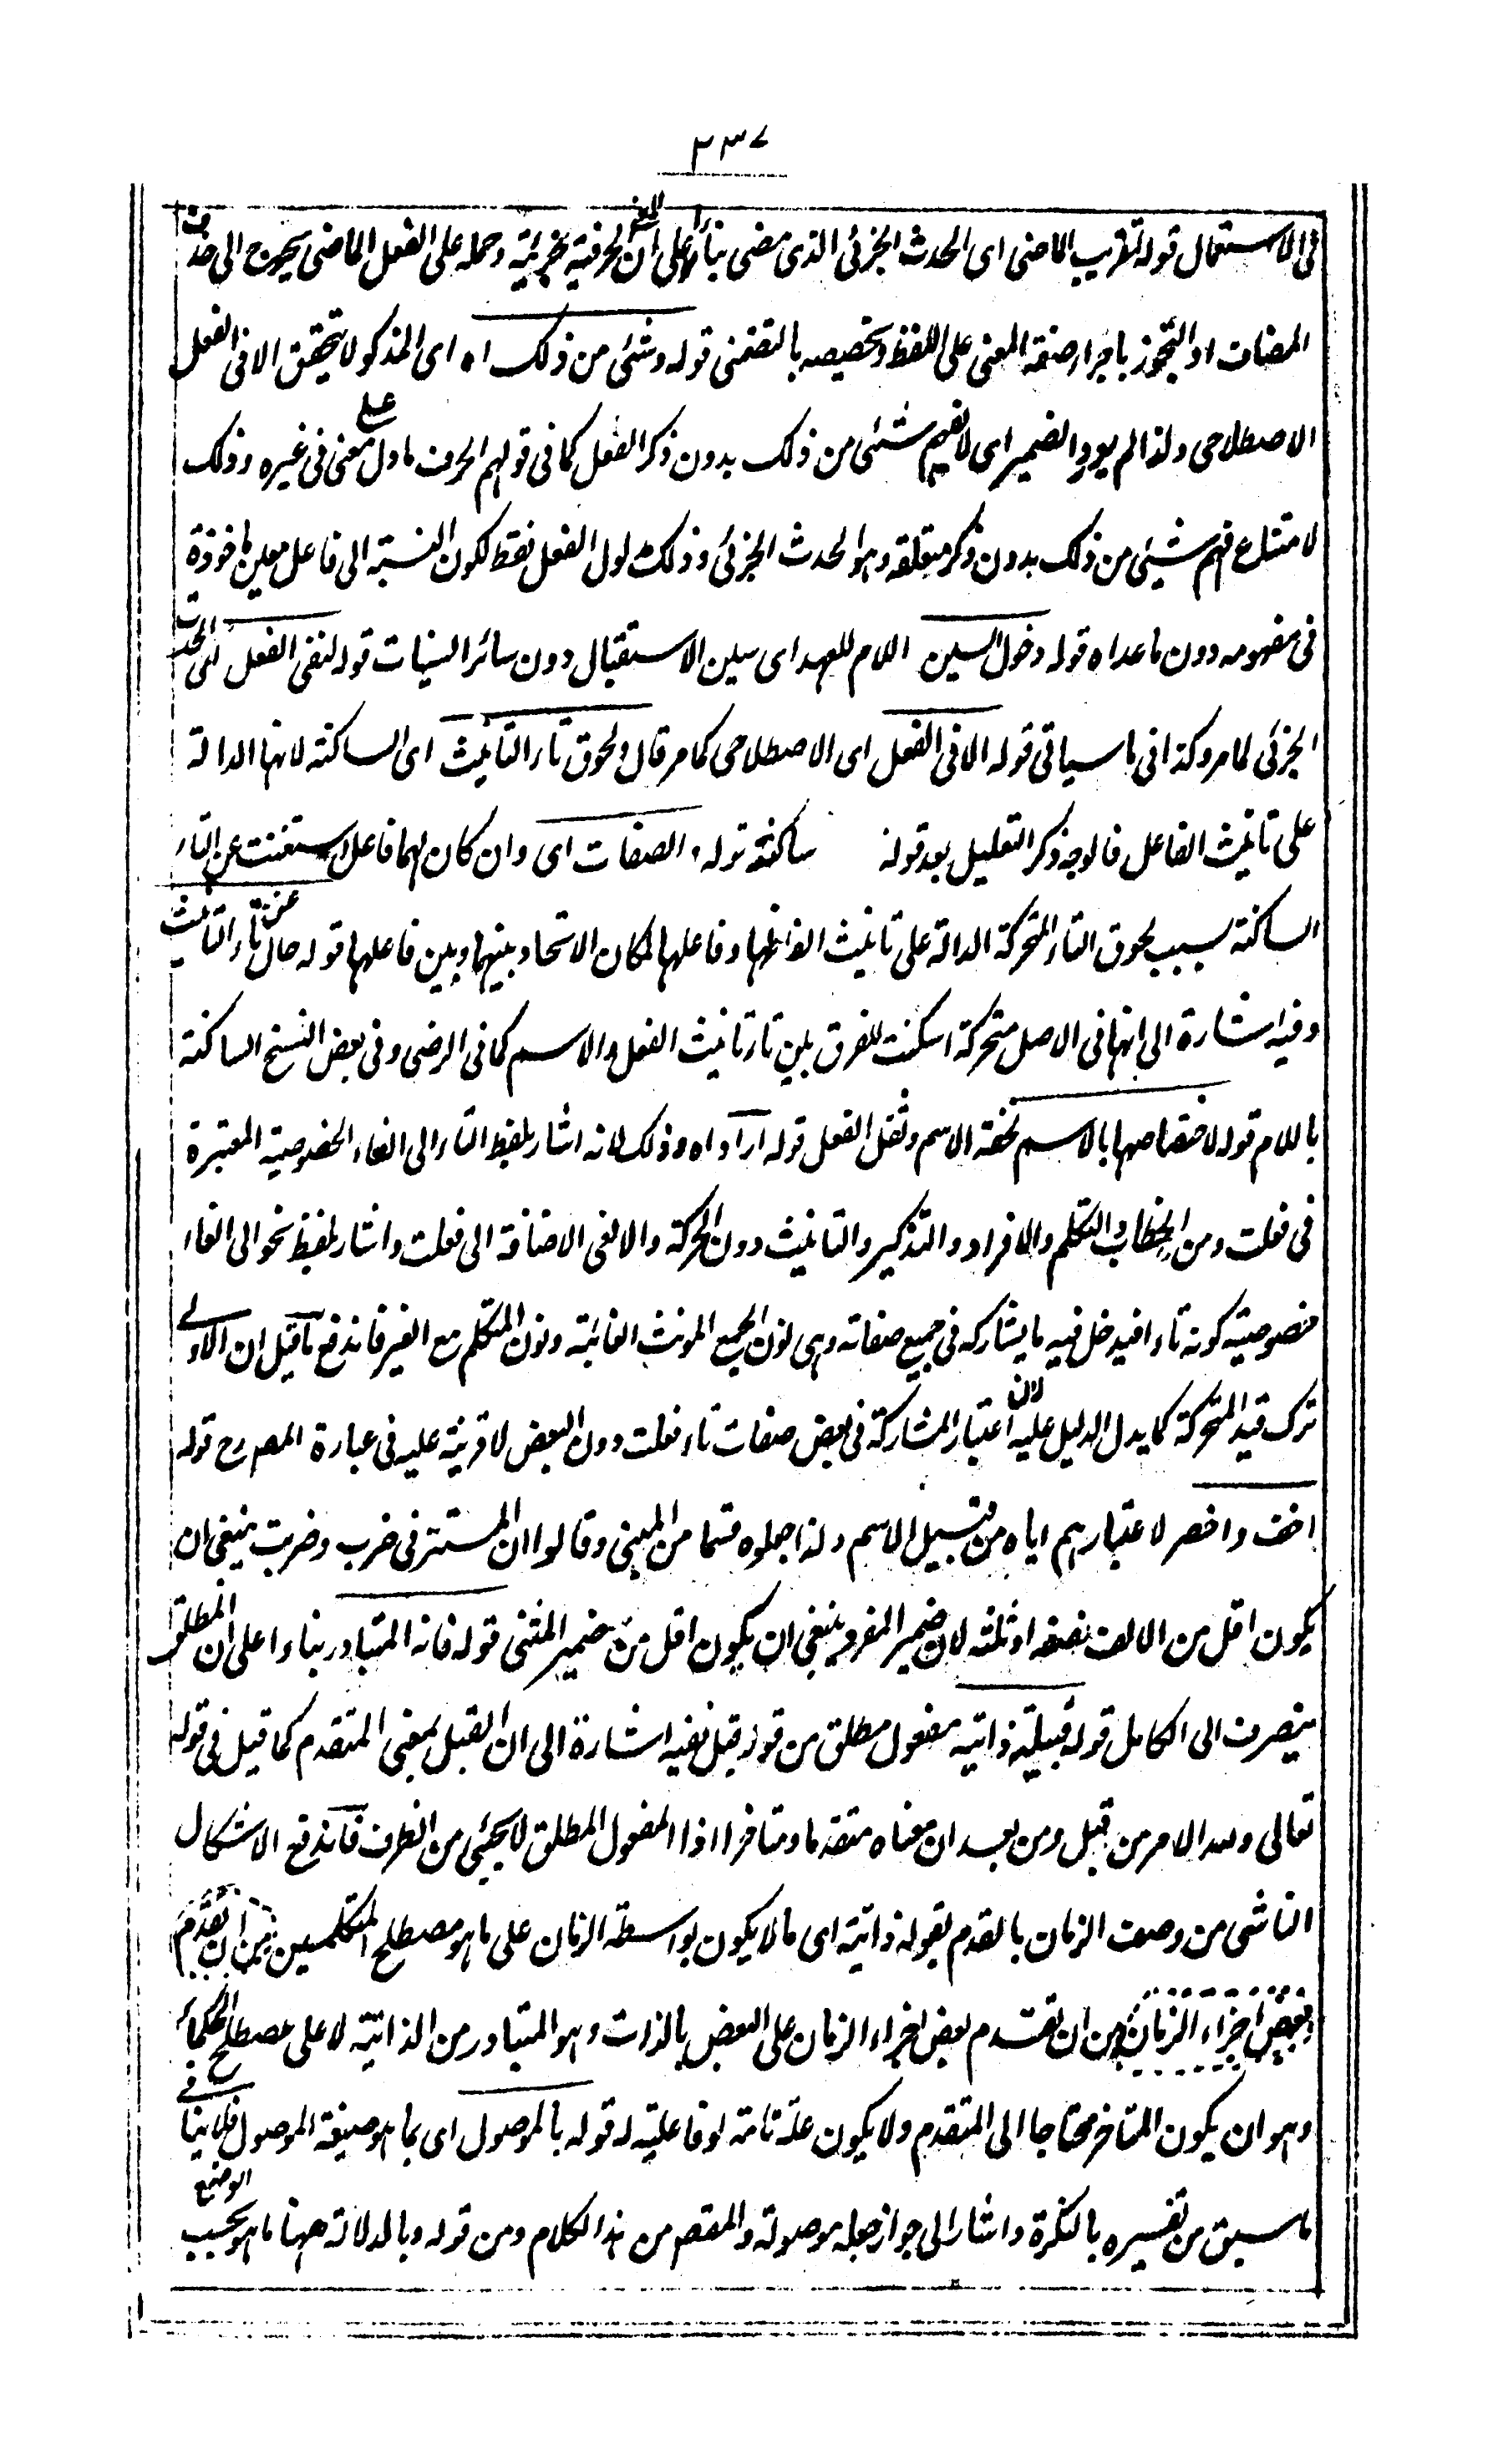 ٣٣٧
فى الاستعمال قوله لتقريب الماضى اى الحدث الجزئى الذى مضى بناء على ان المعنى الحرفية جزئية وحمله على الفعل الماضى يحوج الى حذف
المضاف او التجوز باجراء صفة المعنى على اللفظ وتخصيصه بالتضمنى قوله وشئ من ذلك اه اى المذكور لا يتحقق الا فى الفعل
الاصطلاحى ولذا لم يورد الضمير اى لا يفهم شئ من ذلك بدون ذكر الفعل كما فى قولهم الحرف ما دل على معنى فى غيره وذلك
لامتناع فهم شئ من ذلك بدون ذكر متعلقه وهو الحدث الجزئى وذلك مدلول الفعل فقط لكون النسبة الى فاعل معين ماخوذة
فى مفهومه دون ما عداه قوله دخول السين اللام للعهد اى سين الاستقبال دون سائر السينات قوله لنفى الفعل اى الحدث
الجزئى لما مر وكذا فى ما سياتى قوله الا فى الفعل اى الاصطلاحى كما مر قال ولحوق تاء التانيث اى الساكنة لانها الدالة
على تانيث الفاعل فالوجه ذكر التعليل بعد قوله ساكنة قوله والصفات اى وان كان لهما فاعل استغنت عن التاء
الساكنة بسبب لحوق التاء المتحركة الدالة على تانيث الفاظها وفاعلها لمكان الاتحاد بينهما وبين فاعلها قوله حال عن تاء التانيث
وفيه اشارة الى انها فى الاصل متحركة اسكنت للفرق بين تاء تانيث الفعل والاسم كما فى الرضى وفى بعض النسخ الساكنة
باللام قوله لاختصاصها بالاسم لخفة الاسم وثقل الفعل قوله اراد اه وذلك لانه اشار بلفظ التاء الى الغاء الخصوصية المعتبرة
فى فعلت ومن الخطاب والتكلم والافراد والتذكير والتانيث دون الحركة والا لغى الاضافة الى فعلت واشار بلفظ نحو الى الغاء
خصوصية كونه تاء فيدخل فيه ما يشاركه فى جميع صفاته وهى نون الجمع المونث الغائبة ونون المتكلم مع الغير فاندفع ما قيل ان الاولى
ترك قيد المتحركة كما يدل الدليل عليه لان اعتبار المشاركة فى بعض صفات تاء فعلت دون البعض لا قرينة عليه فى عبارة المصرح قوله
اخف واخصر لاعتبارهم اياه من قبيل الاسم ولذا جعلوه قسما من المبنى وقالوا ان المستتر فى ضرب وضربت ينبغى ان
يكون اقل من الالف نصفه او ثلثه لان ضمير المفرد ينبغى ان يكون اقل من ضمير المثنى قوله فانه المتبادر بناء اعلى ان المطلق
ينصرف الى الكامل قوله قبلية ذاتية مفعول مطلق من قوله قبل ففيه اشارة الى ان القبل بمعنى المتقدم كما قيل فى قوله
تعالى ولله الامر من قبل ومن بعد ان معناه متقدما ومتاخرا اذا المفعول المطلق لا يجئ من الظرف فاندفع الاشكال
الناشى من وصف الزمان بالقدم بقوله ذاتية اى ما لا يكون بواسطة الزمان على ما هو مصطلح المتكلمين من ان تقدم
بعض اجزاء الزمان من ان تقدم بعض اجزاء الزمان على البعض بالذات وهو المتبادر من الذاتية لا على مصطلح الحكماء
وهو ان يكون المتاخر محتاجا الى المتقدم ولا يكون علة تامة او فاعلية له قوله بالموصول اى بما هو صيغة الموصول فلا ينافى
ما سبق من تفسيره بالنكرة واشار الى جواز جعله موصولة والمقصم من هذا الكلام ومن قوله وبالدلالة ههنا ما هو بحسب الوضع